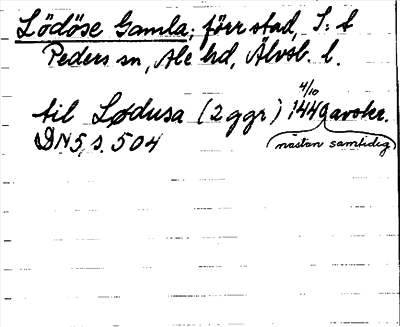 Lödöse Gamla, förr stad, S:t
Peders sn, Ale hd, Älvsb. l.
4/10
til Lødusa (2 ggr) 1440 avskr.
DN 5, s. 504
nästan samtidig